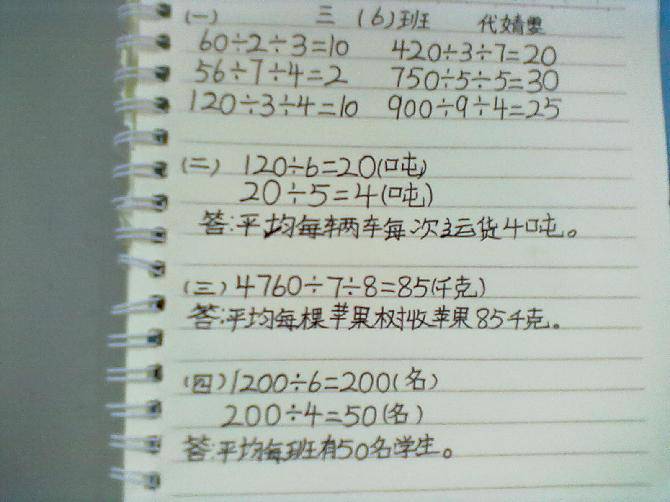 (一) 三(6)班 代婧雯
60÷2÷3=10 420÷3÷7=20
56÷7÷4=2 750÷5÷5=30
120÷3÷4=10 900÷9÷4=25
(二) 120÷6=20(吨)
20÷5=4(吨)
答:平均每辆车每次运货4吨。
(三) 4760÷7÷8=85(千克)
答:平均每棵苹果树收苹果85千克。
(四) 1200÷6=200(名)
200÷4=50(名)
答:平均每班有50名学生。